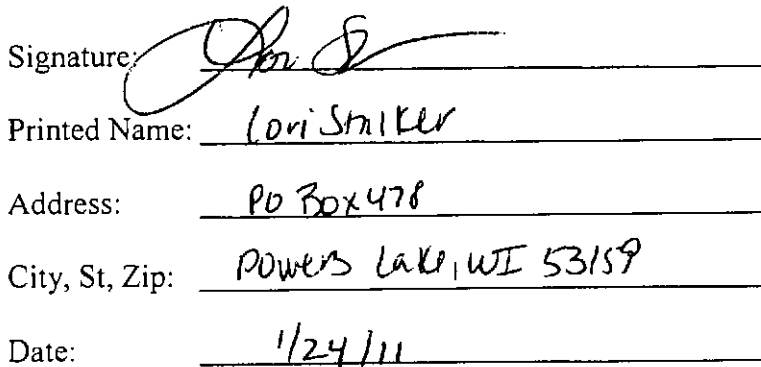 Signature:
Printed Name: Lori Stalker
Address: PO Box 478
City, St, Zip: Powers Lake, WI 53159
Date: 1/24/11